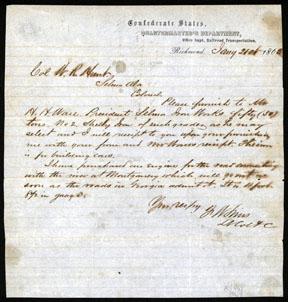 Confederate States,
QUARTERMASTER'S DEPARTMENT,
Office Supt. Railroad Transportation,
Richmond, Jany 21st 186
Col. W. R. Hunt
Selma Ala
Colonel
Please furnish to Mr
H. H. Ware President Selma Iron Works fifty (50)
tons No 2 Shelby Iron of such grades as he may
select and I will receipt to you upon your furnishing
me with your form and Mr Wares receipt
is for building cars.
I have purchased an engine for the road connecting
with the one at Montgomery which will go out as
soon as the roads in Georgia admit of it
in gauge.
Yours Resply